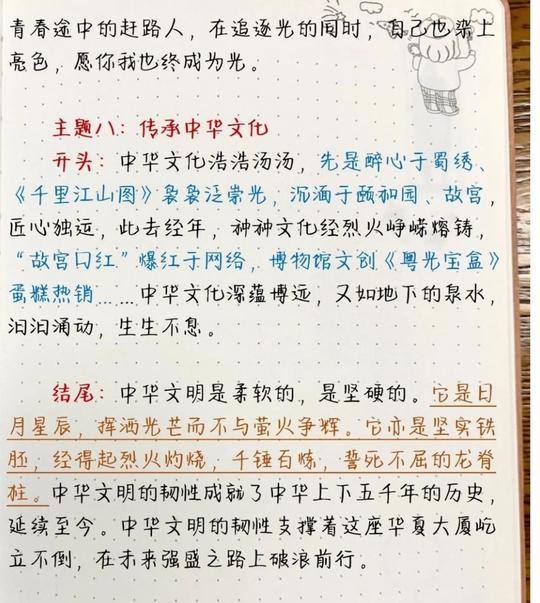 青春途中的赶路人，在追逐光的同时，自己也染上
亮色，愿你我也终成为光。
主题八：传承中华文化
开头：中华文化浩浩汤汤，先是醉心于蜀绣、
《千里江山图》袅袅泛崇光，沉湎于颐和园、故宫，
匠心独远，此去经年，种种文化经烈火峥嵘熔铸，
“故宫口红”爆红于网络，博物馆文创《粤光宝盒》
蛋糕热销……中华文化深蕴博远，又如地下的泉水，
汩汩涌动，生生不息。
结尾：中华文明是柔软的，是坚硬的。它是日
月星辰，挥洒光芒而不与萤火争辉。它亦是坚实铁
胚，经得起烈火灼烧，千锤百炼，誓死不屈的龙脊
柱。中华文明的韧性成就了中华上下五千年的历史，
延续至今。中华文明的韧性支撑着这座华夏大厦屹
立不倒，在未来强盛之路上破浪前行。